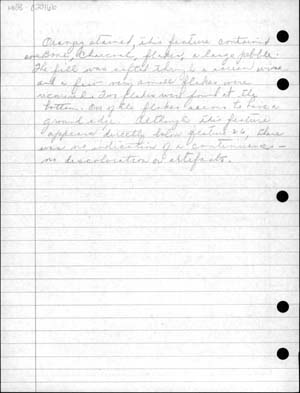 Orangy stained, this feature contained
some Bone, Charcoal, flakes, a large pebble.
The fill was sifted through a screen
and a few very small flakes were
recovered. Two flakes were found at the
bottom. One of the flakes seems to have a
ground edge. Although this feature
appears directly below feature 26, there
was no indication of a continuance -
no discoloration or artifacts.